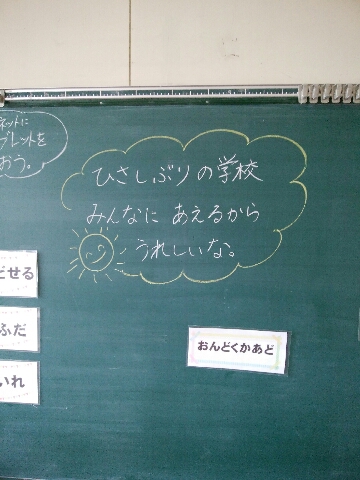 ネットに
ブレットを
おう。
ひさしぶりの学校
みんなに あえるから
うれしいな。
どせる
ふだ
いれ
おんどくかあど